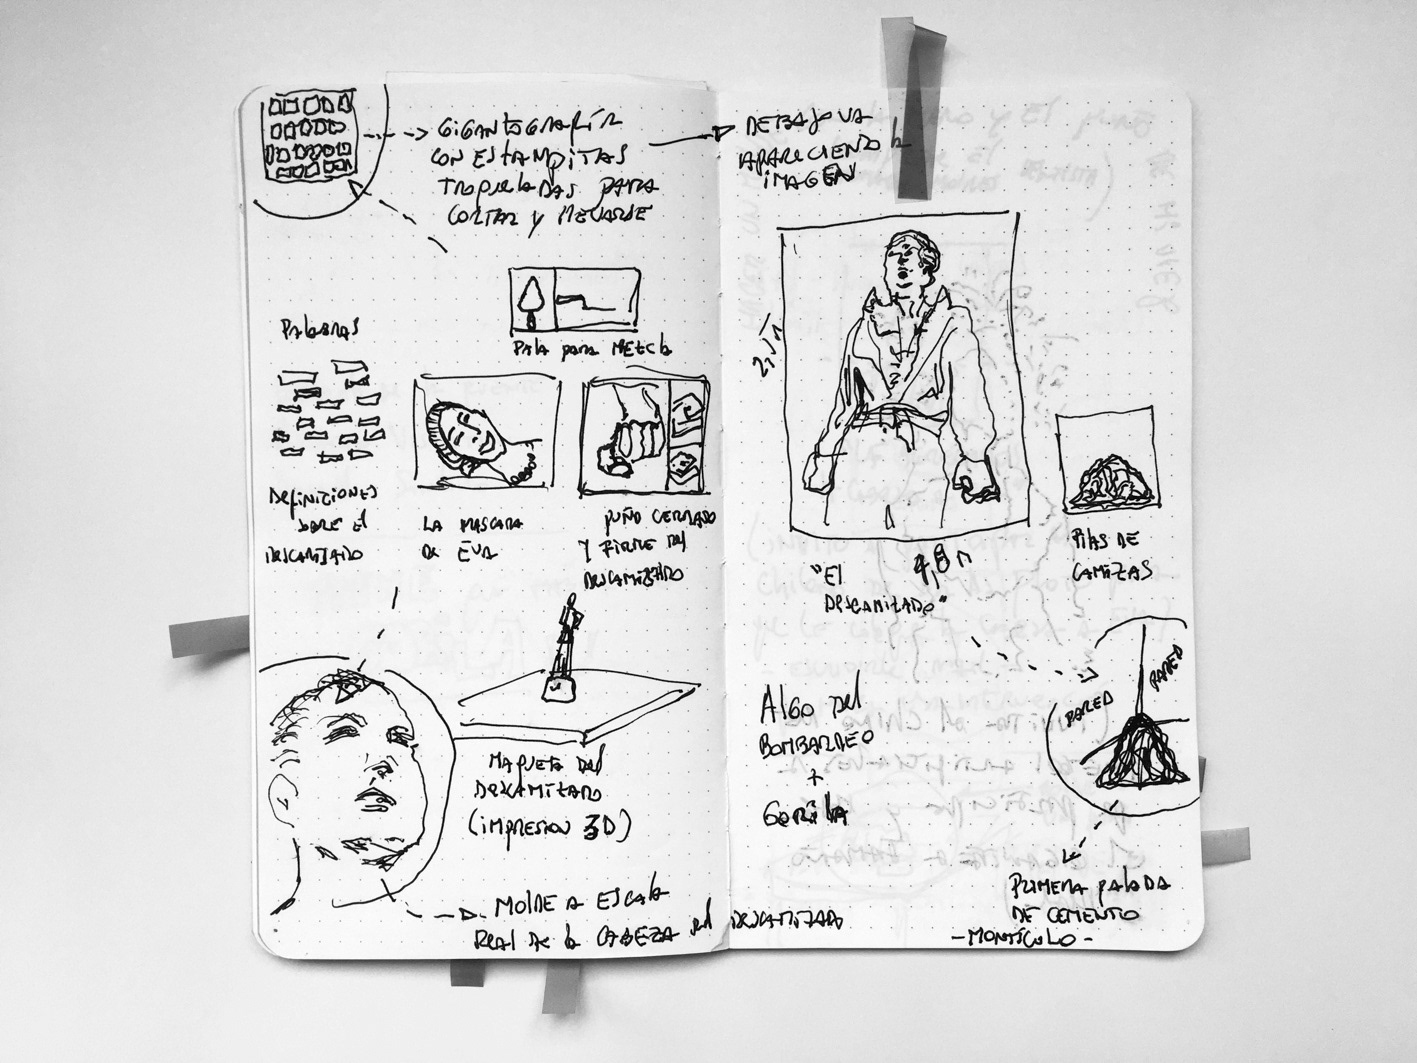 GIGANTOGRAFIA
CON ESTAMPITAS
TROQUELADAS PARA
CORTAR y LLEVARSE
PALABRAS
PALA PARA MEZCLA
DEFINICIONES
SOBRE El
DESCAMISADO
LA MASCARA
DE EVA
PUÑO CERRADO
Y FIRME DEL
DESCAMISADO
MAQUETA DEL
DESCAMISADO
(IMPRESION 3D)
MOLDE A ESCALA
REAL DE LA CABEZA DEL DESCAMISADO
DEBAJO VA
APARECIENDO LA
IMAGEN
"El
DESCAMISADO"
4,8 m
PILAS DE
CAMISAS
ALGO DEL
BOMBARDEO
+
GORILA
PARED
PARED
PRIMERA PALADA
DE CEMENTO
- MONTICULO -